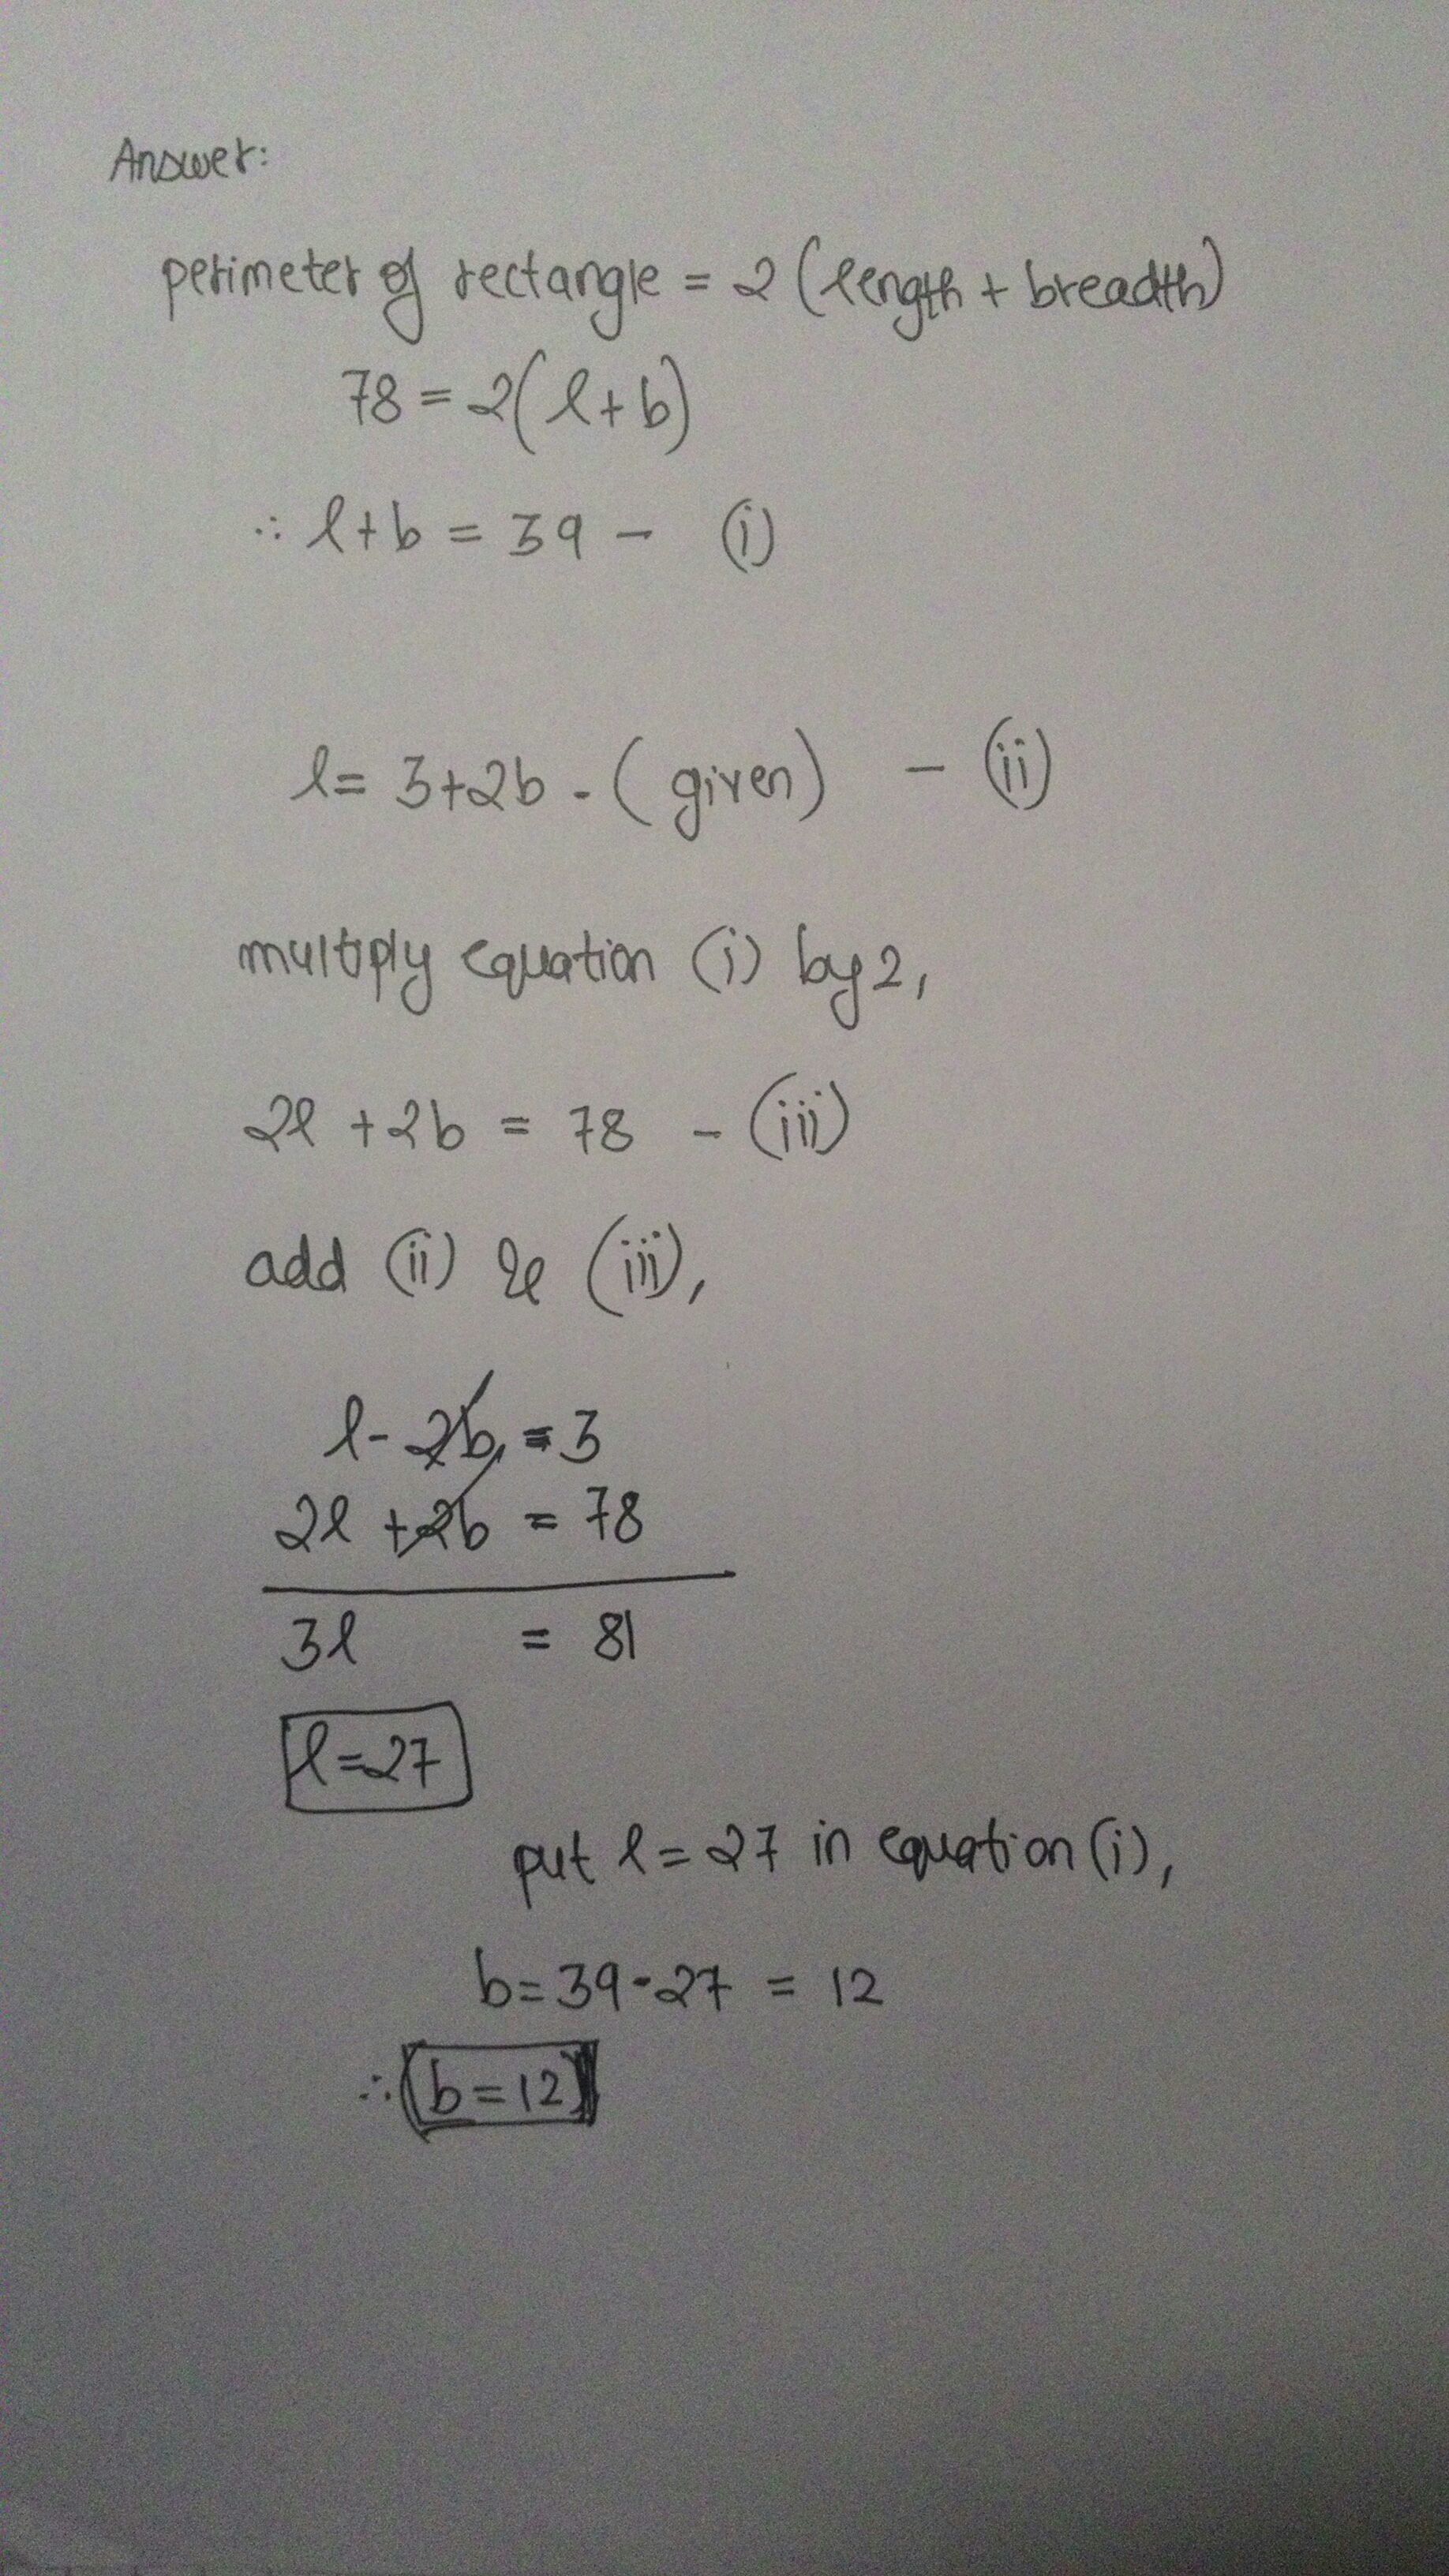 Answer:
perimeter of rectangle = 2 (length + breadth)
78 = 2(l+b)
∴ l+b = 39 - (i)
l= 3+2b - (given) - (ii)
multiply equation (i) by 2,
2l +2b = 78 - (iii)
add (ii) & (iii),
l- 2b = 3
2l +2b = 78
3l = 81
l=27
put l=27 in equation (i),
b=39-27 = 12
∴ b=12